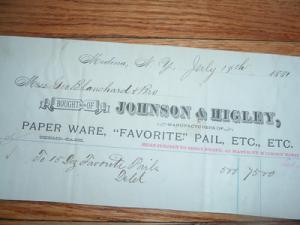 Medina, N. Y. July 18th 1881
Mess Geo Blanchard & Bro
BOUGHT OF JOHNSON & HIGLEY,
MANUFACTURERS OF
PAPER WARE, "FAVORITE" PAIL, ETC., ETC.
To 15 Dz Favorite Pails 500 7500